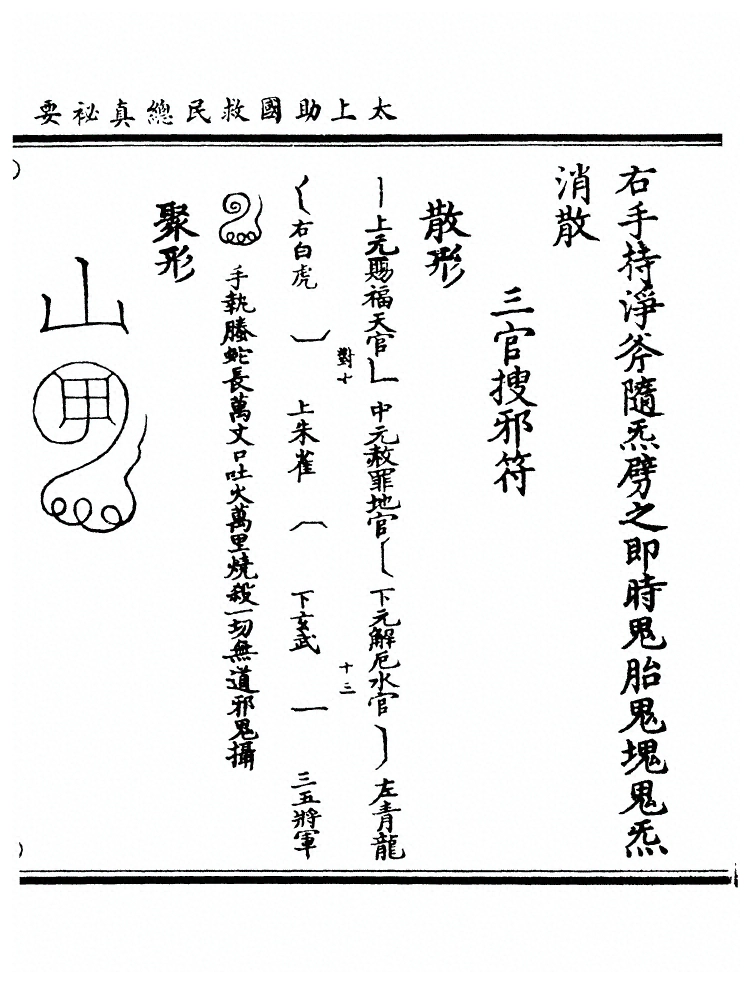 太上助國救民總真祕要
右手持淨斧隨炁劈之即時鬼胎鬼塊鬼炁
消散
三官搜邪符
散形
上元賜福天官
中元赦罪地官
下元解厄水官
左青龍
對十
十三
右白虎
上朱雀
下玄武
三五將軍
手執螣蛇長萬丈口吐火萬里燒殺一切無道邪鬼攝
聚形